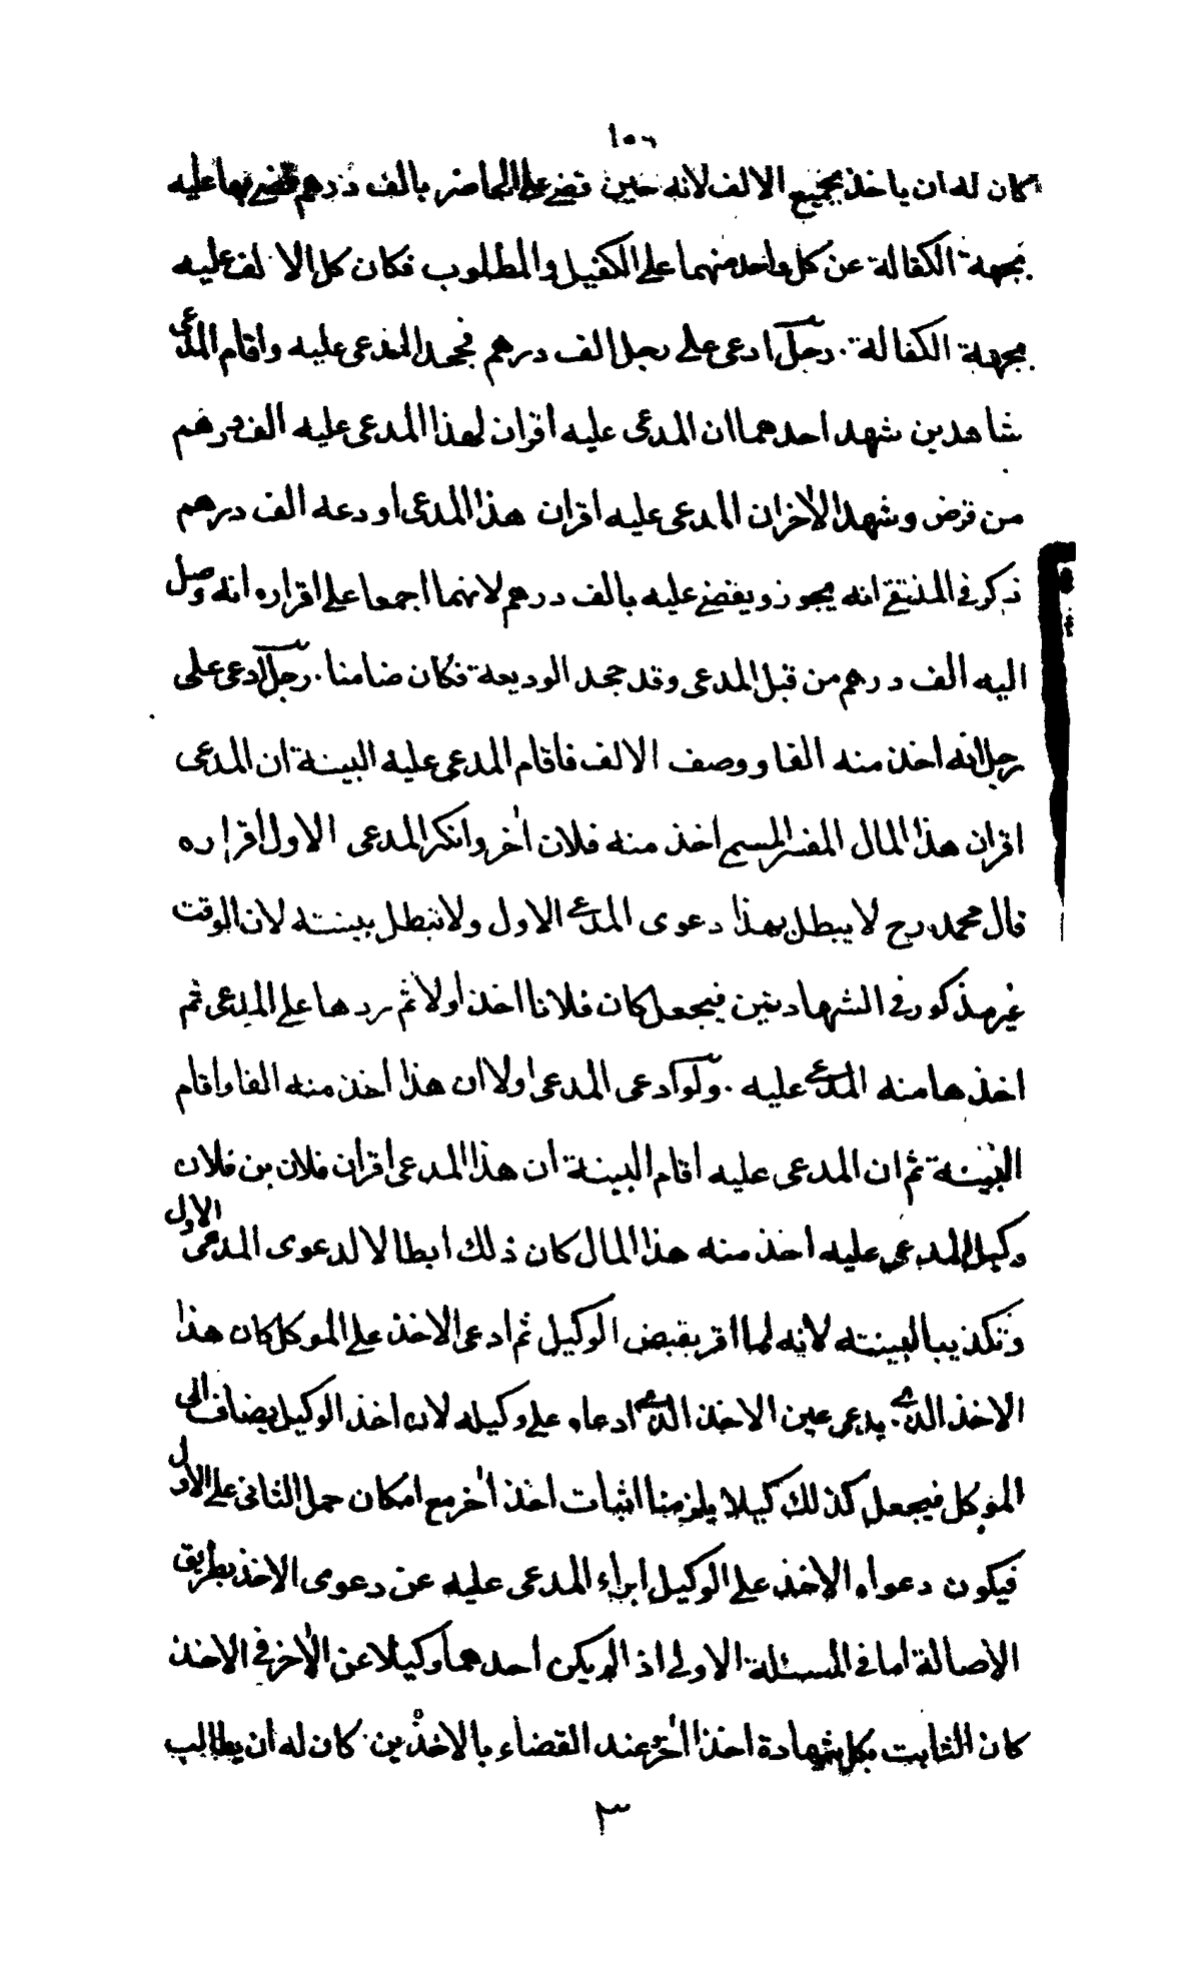 ١٥٦
كان له ان ياخذ بجميع الالف لانه حين قضى على الحاضر بالف درهم قضى بها عليه
بجهة الكفالة عن كل واحد منهما على الكفيل والمطلوب فكان كل الالف عليه
بجهة الكفالة . رجل ادعى على رجل الف درهم فجحد المدعى عليه واقام المدعي
شاهدين شهد احدهما ان المدعى عليه اقر ان لهذا المدعى عليه الف درهم
من قرض وشهد الآخر ان المدعى عليه اقر ان هذا المدعى اودعه الف درهم
ذكر في المنتقى انه يجوز ويقضى عليه بالف درهم لانهما اجمعا على اقراره انه وصل
اليه الف درهم من قبل المدعى وقد جحد الوديعة فكان ضامنا . رجل ادعى على
رجل انه اخذ منه الفا ووصف الالف فاقام المدعى عليه البينة ان المدعى
اقر ان هذا المال المفسر المسمى اخذ منه فلان آخر وانكر المدعى الاول اقراره
قال محمد رح لا يبطل بهذا دعوى المدعي الاول ولا تبطل ببينته لان الوقت
غير مذكور في الشهادتين فيجعل كان فلانا اخذ اولا ثم ردها على المدعى ثم
اخذها منه المدعي عليه . ولو ادعى المدعى اولا ان هذا اخذ منه الفا واقام
البينة ثم ان المدعى عليه اقام البينة ان هذا المدعى اقر ان فلان بن فلان
وكيل المدعى عليه اخذ منه هذا المال كان ذلك ابطالا لدعوى المدعى الاول
وتكذيبا لبينته لانه لما اقر بقبض الوكيل ثم ادعى الاخذ على الموكل كان هذا
الاخذ الذي يدعى عين الاخذ الذي ادعاه على وكيله لان اخذ الوكيل يضاف الى
الموكل فيجعل كذلك كيلا يلزمنا اثبات اخذ آخر مع امكان حمل الثاني على الاول
فيكون دعواه الاخذ على الوكيل ابراء المدعى عليه عن دعوى الاخذ بطريق
الاصالة اما في المسئلة الاولى اذ لم يكن احدهما وكيلا عن الآخر في الاخذ
كان الثابت بكل شهادة اخذا آخر عند القضاء بالاخذين كان له ان يطالب
٣